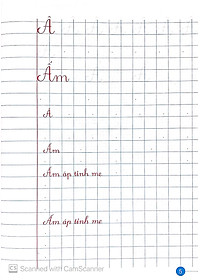 Â
Ấm
Â
Ấm
Ấm áp tình mẹ
Ấm áp tình mẹ
6
CS Scanned with CamScanner